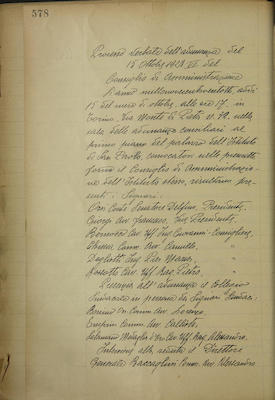 578
Processo Verbale dell'adunanza del
15 Ottobre 1928 VI del
Consiglio di Amministrazione
L'anno millenovecentoventotto, addì
15 del mese di ottobre, alle ore 17, in
Torino, Via Monte di Pietà N. 32, nella
sala delle adunanze consiliari al
primo piano del palazzo dell'Istituto
di San Paolo, convocatosi nelle prescritte
forme il Consiglio di Amministrazio-
ne dell'Istituto stesso, risultano pre-
senti i Signori:
Presidente,
Vice Presidente,
Giovanni - Consigliere,
Comm. Avv. Camillo, "
Ing. Pier "
Cav. Uff. Rag. Pietro, "
all'adunanza il Collegio
Sindacale in persona dei Signori Sindaci:
Comm. Avv. Lorenzo,
Comm. Avv.
Cav. Uff. Rag. Alessandro.
Interviene alla seduta il Direttore
Generale Baccaglini Comm. Avv. Alessandro